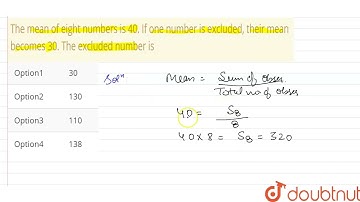 The mean of eight numbers is 40. If one number is excluded, their mean
becomes 30. The excluded number is
Option1 30
Option2 130
Option3 110
Option4 138
Solⁿ
Mean = Sum of obser.
Total no of obser
40 = S8
8
40 x 8 = S8 = 320
doubtnut